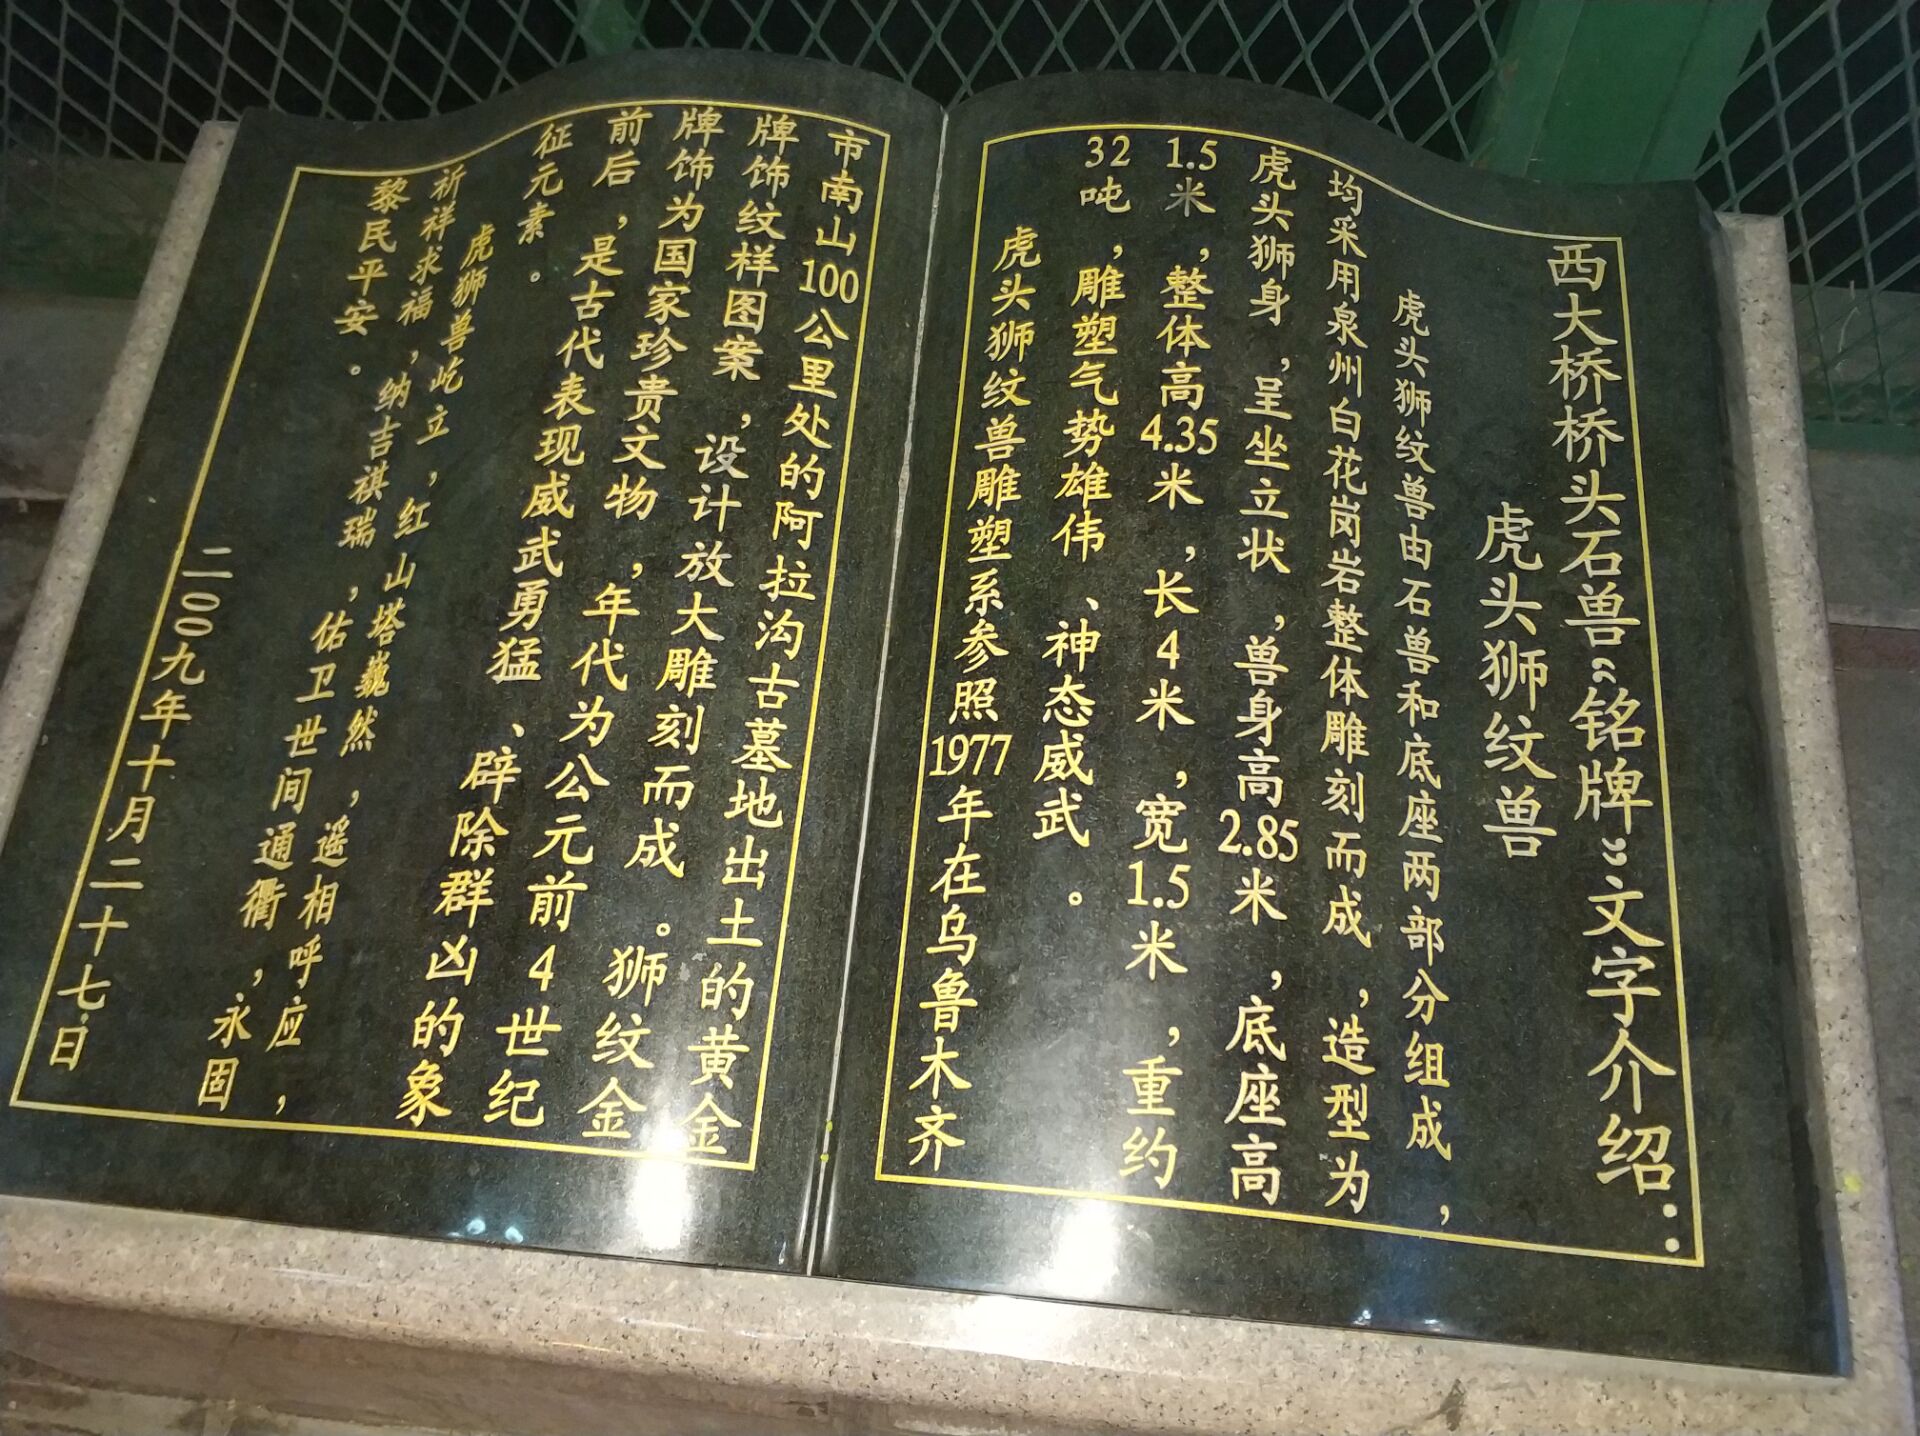 西大桥桥头石兽“铭牌”文字介绍：
虎头狮纹兽
虎头狮纹兽由石兽和底座两部分组成，
均采用泉州白花岗岩整体雕刻而成，造型为
虎头狮身，呈坐立状，兽身高2.85米，底座高
1.5米，整体高4.35米，长4米，宽1.5米，重约
32吨，雕塑气势雄伟、神态威武。
虎头狮纹兽雕塑系参照1977年在乌鲁木齐
市南山100公里处的阿拉沟古墓地出土的黄金
牌饰纹样图案，设计放大雕刻而成。狮纹金
牌饰为国家珍贵文物，年代为公元前4世纪
前后，是古代表现威武勇猛、辟除群凶的象
征元素。
虎狮兽屹立，红山塔巍然，遥相呼应，
祈祥求福，纳吉祺瑞，佑卫世间通衢，永固
黎民平安。
二00九年十月二十七日